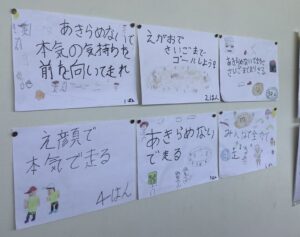 あきらめないで
本気の気持ちを
前を向いて走れ
1はん
えがおで
さいごまで
ゴールしよう!
2はん
あきらめないで
え顔で
本気で走る
4はん
あきらめない
で走る
みんなで全力で
走